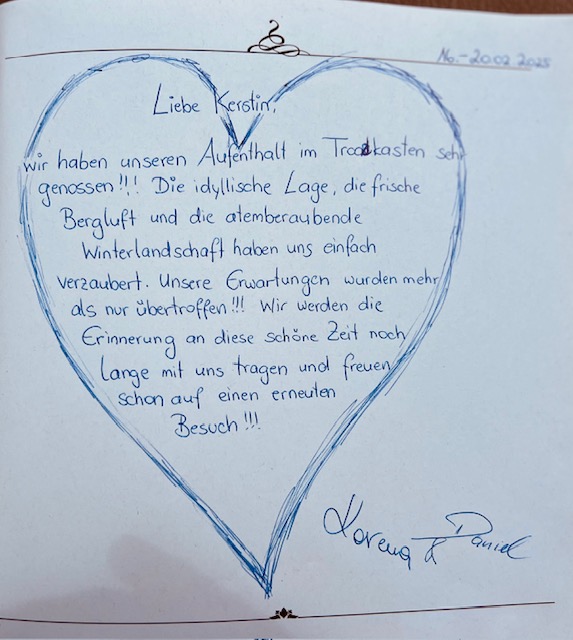 16.-20.02.2025
Liebe Kerstin,
wir haben unseren Aufenthalt im Troadkasten sehr
genossen!!! Die idyllische Lage, die frische
Bergluft und die atemberaubende
Winterlandschaft haben uns einfach
verzaubert. Unsere Erwartungen wurden mehr
als nur übertroffen!!! Wir werden die
Erinnerung an diese schöne Zeit noch
lange mit uns tragen und freuen
schon auf einen erneuten
Besuch!!!
Verena & Daniel